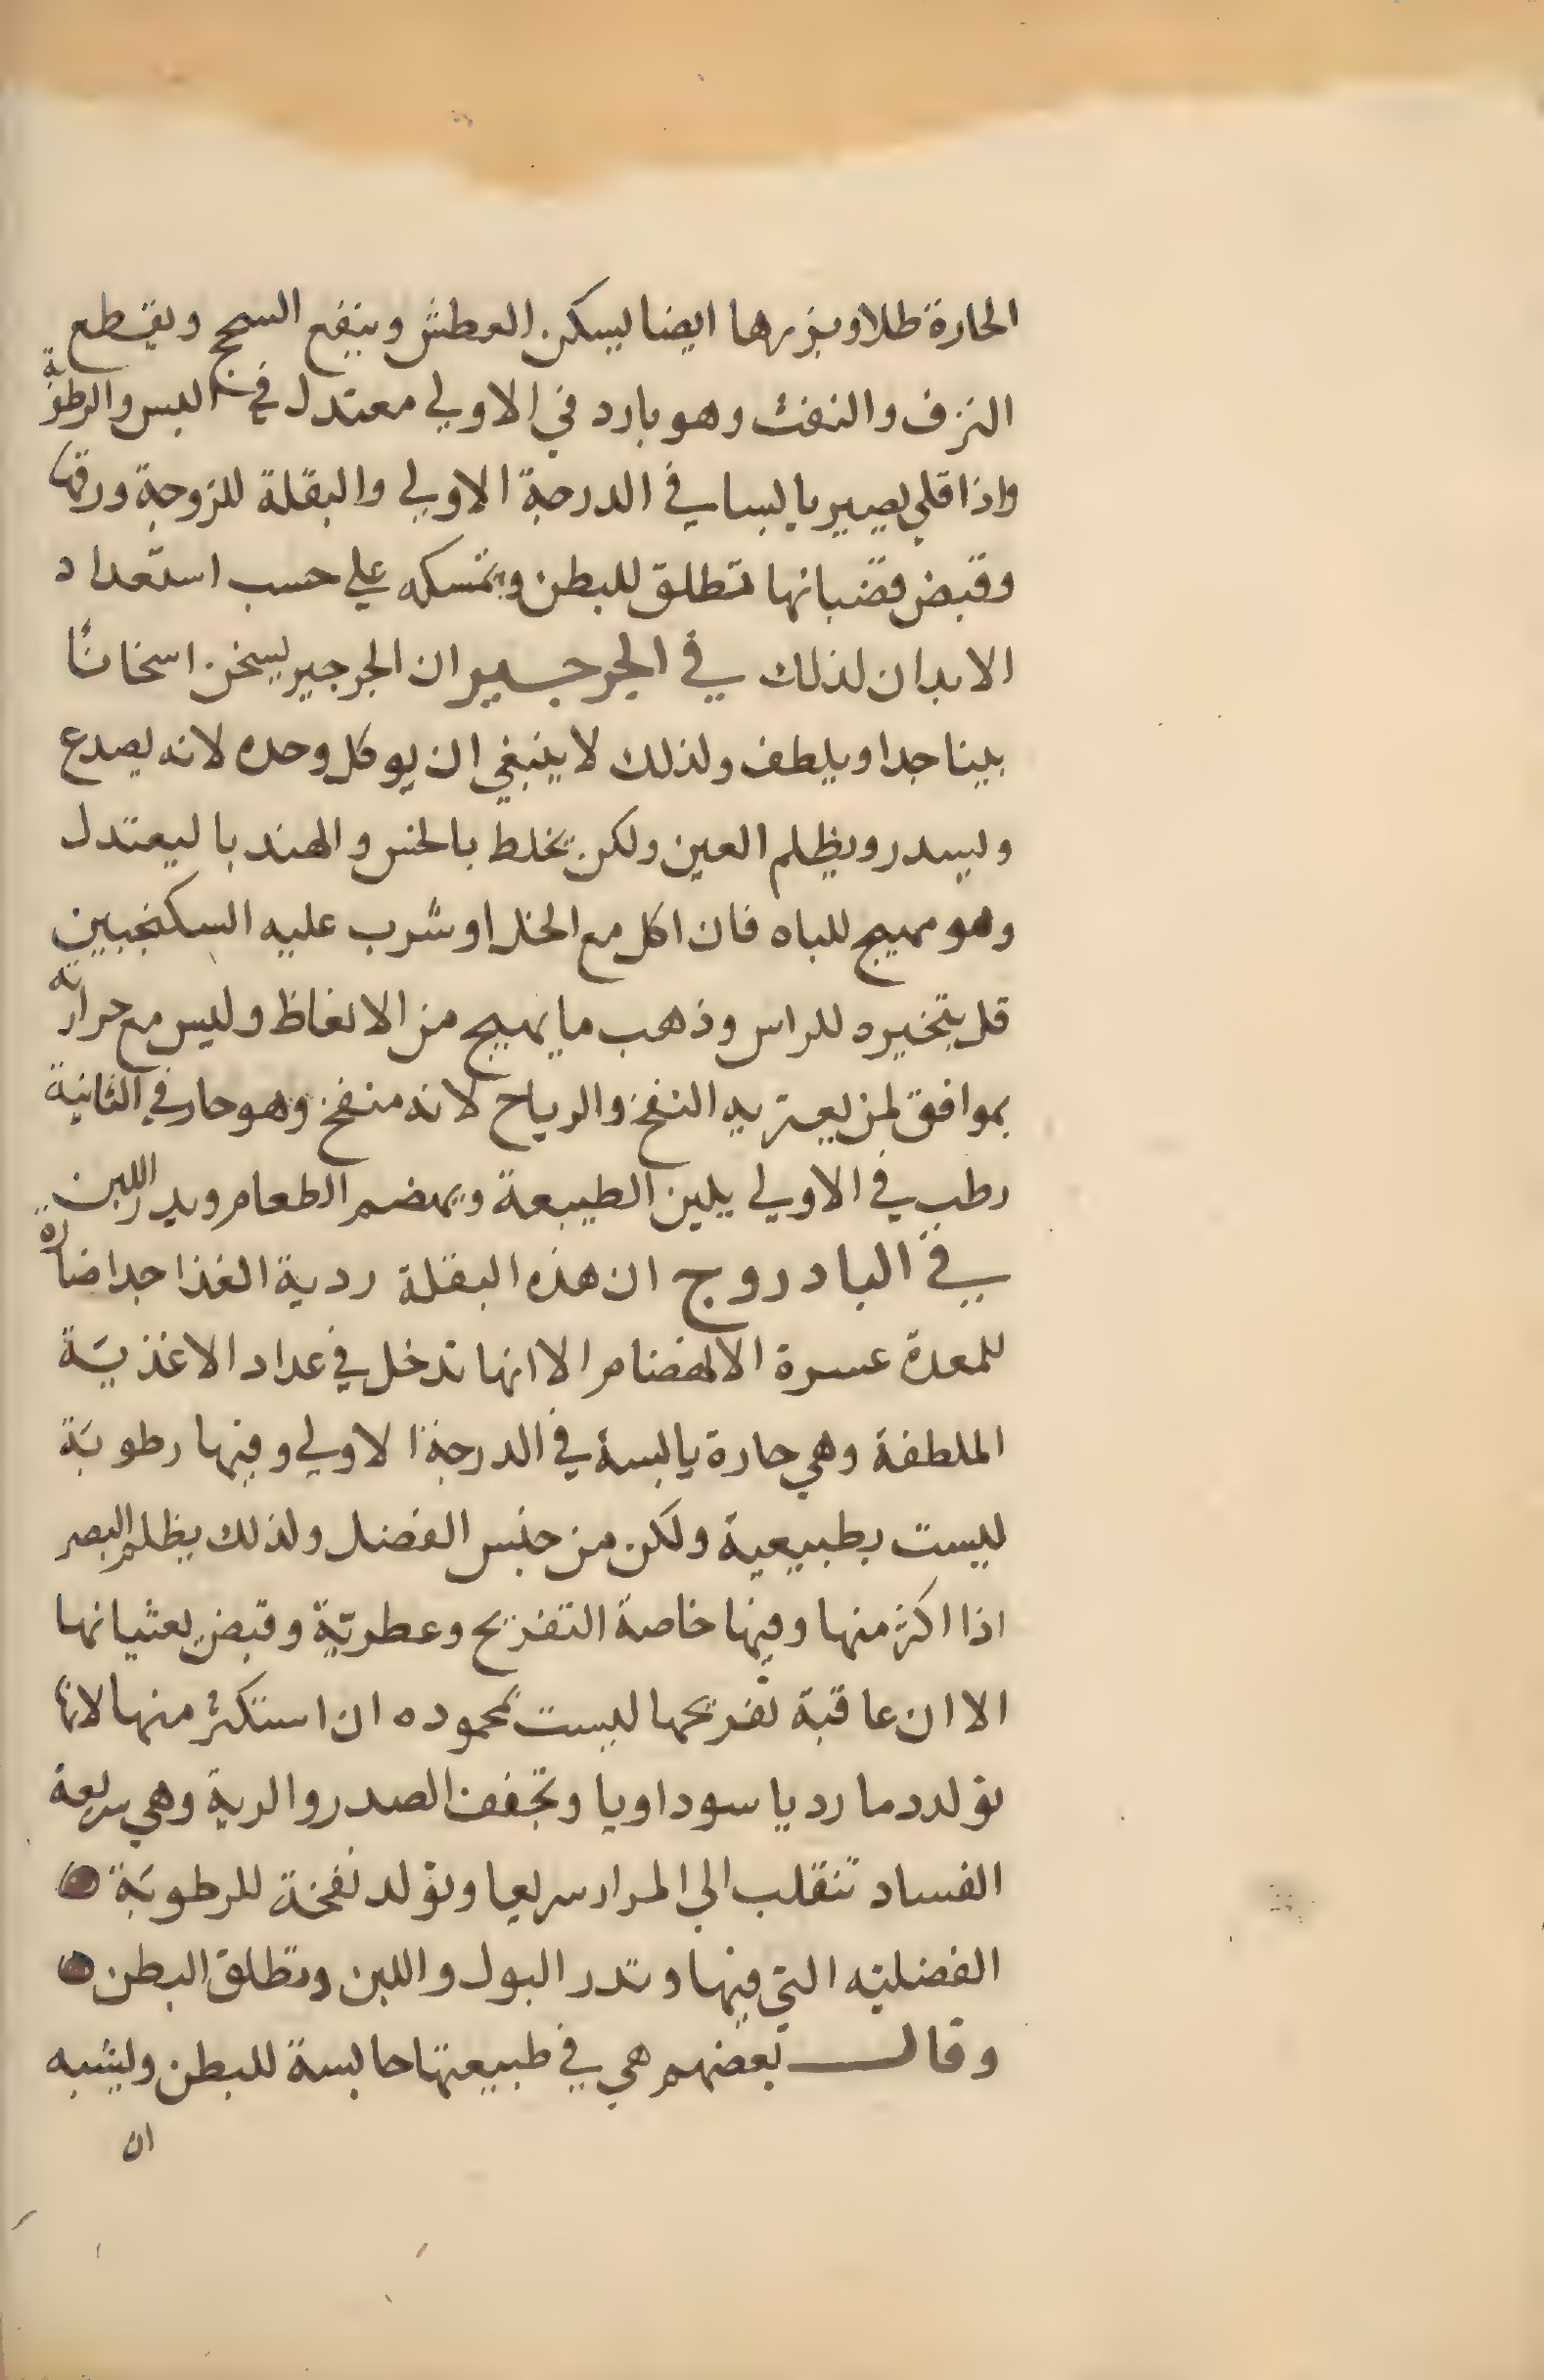 الحارة طلا وبزرها ايضا يسكن العطش وينفع السحج ويقطع
النزف والنفث وهو بارد في الاولي معتدل في اليبس والرطوبة
واذا قلي يصير يابسا في الدرجة الاولي والبقلة للزوجة ورقها
وقبض قضبانها تطلق للبطن ويمسكه علي حسب استعداد
الابدان لذلك في الجرجير ان الجرجير يسخن اسخانًا
بينا جدا ويلطف ولذلك لا ينبغي ان يوكل وحده لانه يصدع
ويسدر ويظلم العين ولكن يخلط بالخس والهندبا ليعتدل
وهو مهيج للباه فان اكل مع الخل او شرب عليه السكنجبين
قل بتخيره للراس وذهب ما يهيج من الانعاظ وليس مع حرارته
بموافق لمن يعتريه النفخ والرياح لانه منفخ وهو حار في الثانية
رطب في الاولي يلين الطبيعة ويهضم الطعام ويدر اللبن
في البادروج ان هذه البقلة ردية الغذا جدا ضارة
للمعدة عسرة الانهضام الا انها تدخل في عداد الاغذية
الملطفة وهي حارة يابسة في الدرجة الاولي وفيها رطوبة
ليست بطبيعية ولكن من جنس الفضل ولذلك يظلم البصر
اذا اكثر منها وفيها خاصة التفريح وعطرية وقبض يعثيانها
الا ان عاقبة تفريحها ليست بمحموده ان استكثر منها لانها
تولد دما رديا سوداويا وتجفف الصدر والرية وهي سريعة
الفساد تنقلب الي المرار سريعا وتولد نفخة للرطوبة
الفضلية التي فيها وتدر البول واللبن وتطلق البطن
وقال بعضهم هي في طبيعتها حابسة للبطن ويشبه
ان